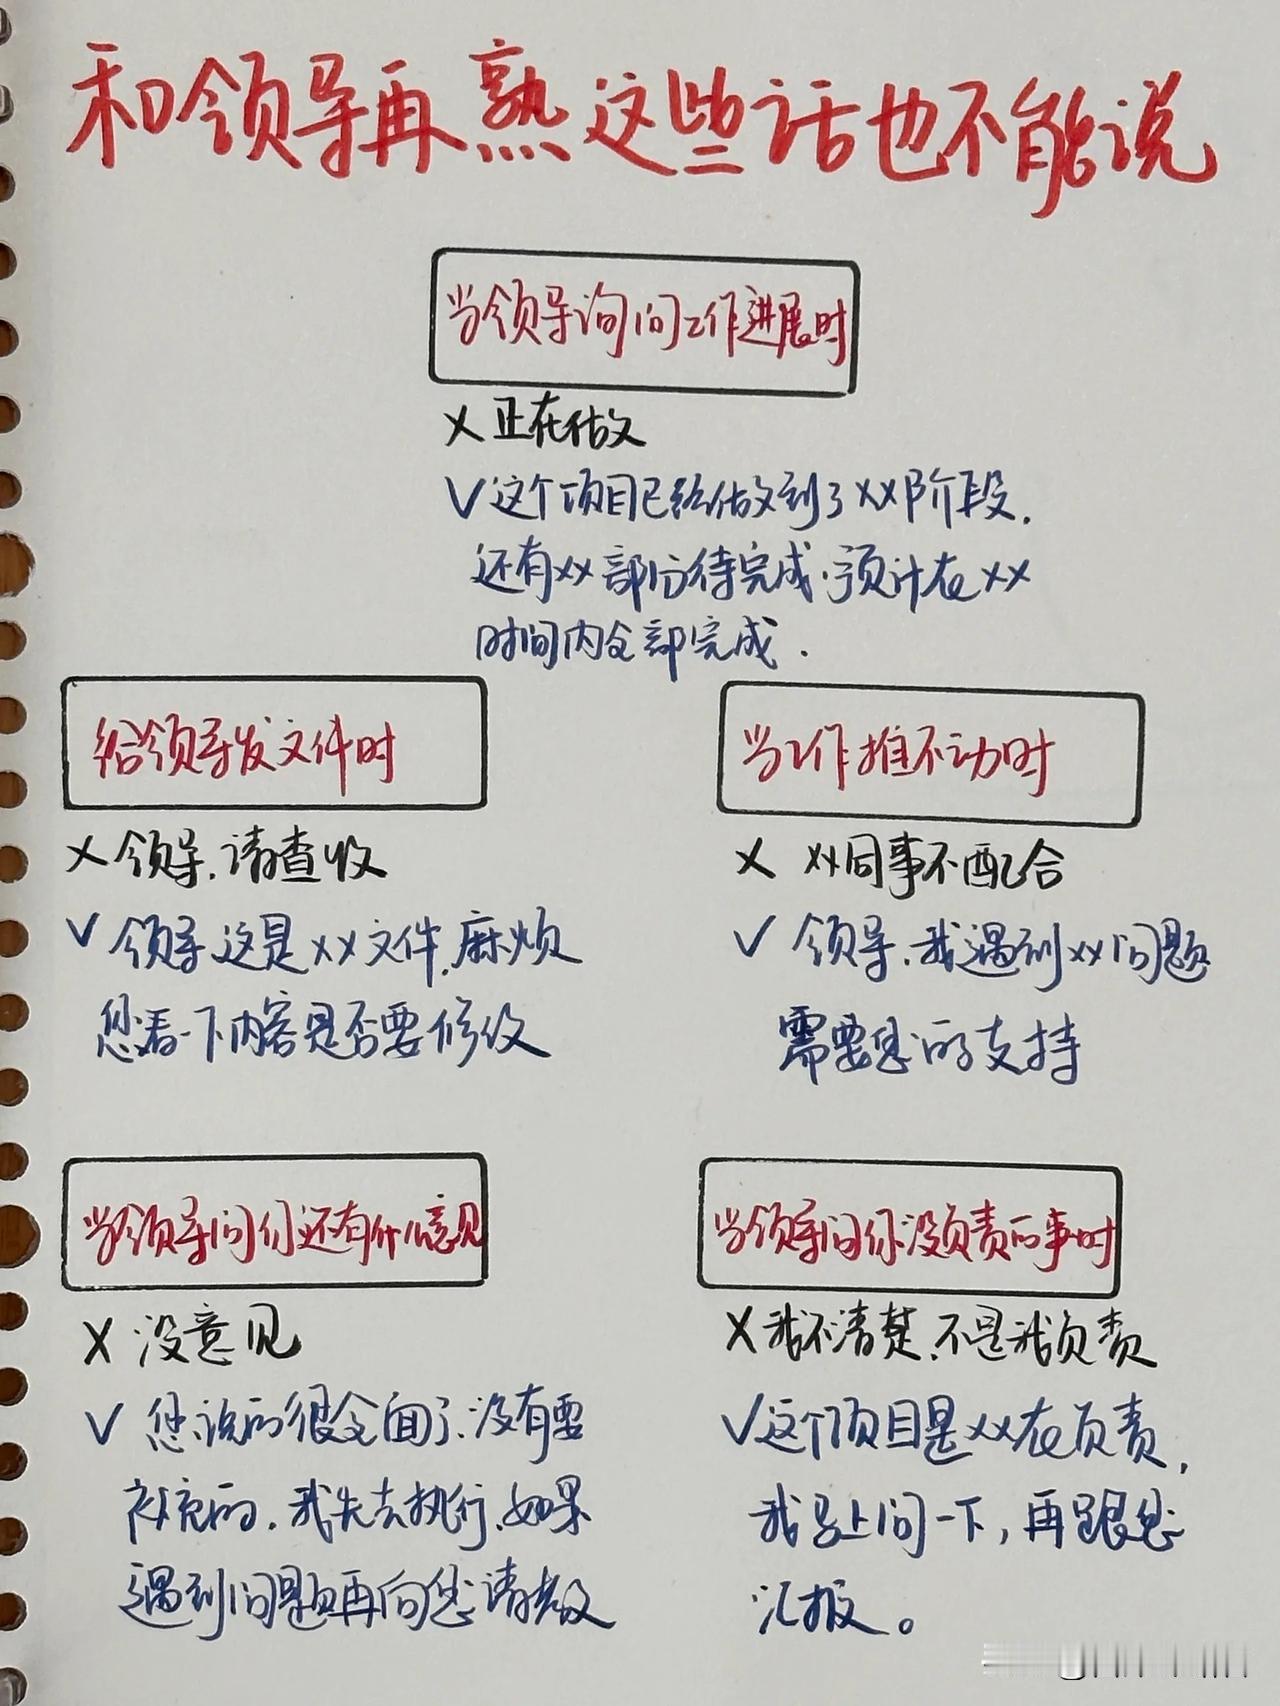 和领导再熟这些话也不能说
当领导询问工作进展时
X 正在做
√ 这个项目已经做到了XX阶段.
还有XX部份待完成.预计在XX
时间内全部完成.
给领导发文件时
X 领导.请查收
√ 领导.这是XX文件.麻烦
您看一下内容是否要修改
当工作推不动时
X XX同事不配合
√ 领导.我遇到XX问题
需要您的支持
当领导问你还有什么意见
X 没意见
√ 您说的很全面了.没有要
补充的.我先去执行.如果
遇到问题再向您请教
当领导问你没负责的事时
X 我不清楚.不是我负责
√ 这个项目是XX在负责,
我马上问一下,再跟您
汇报。